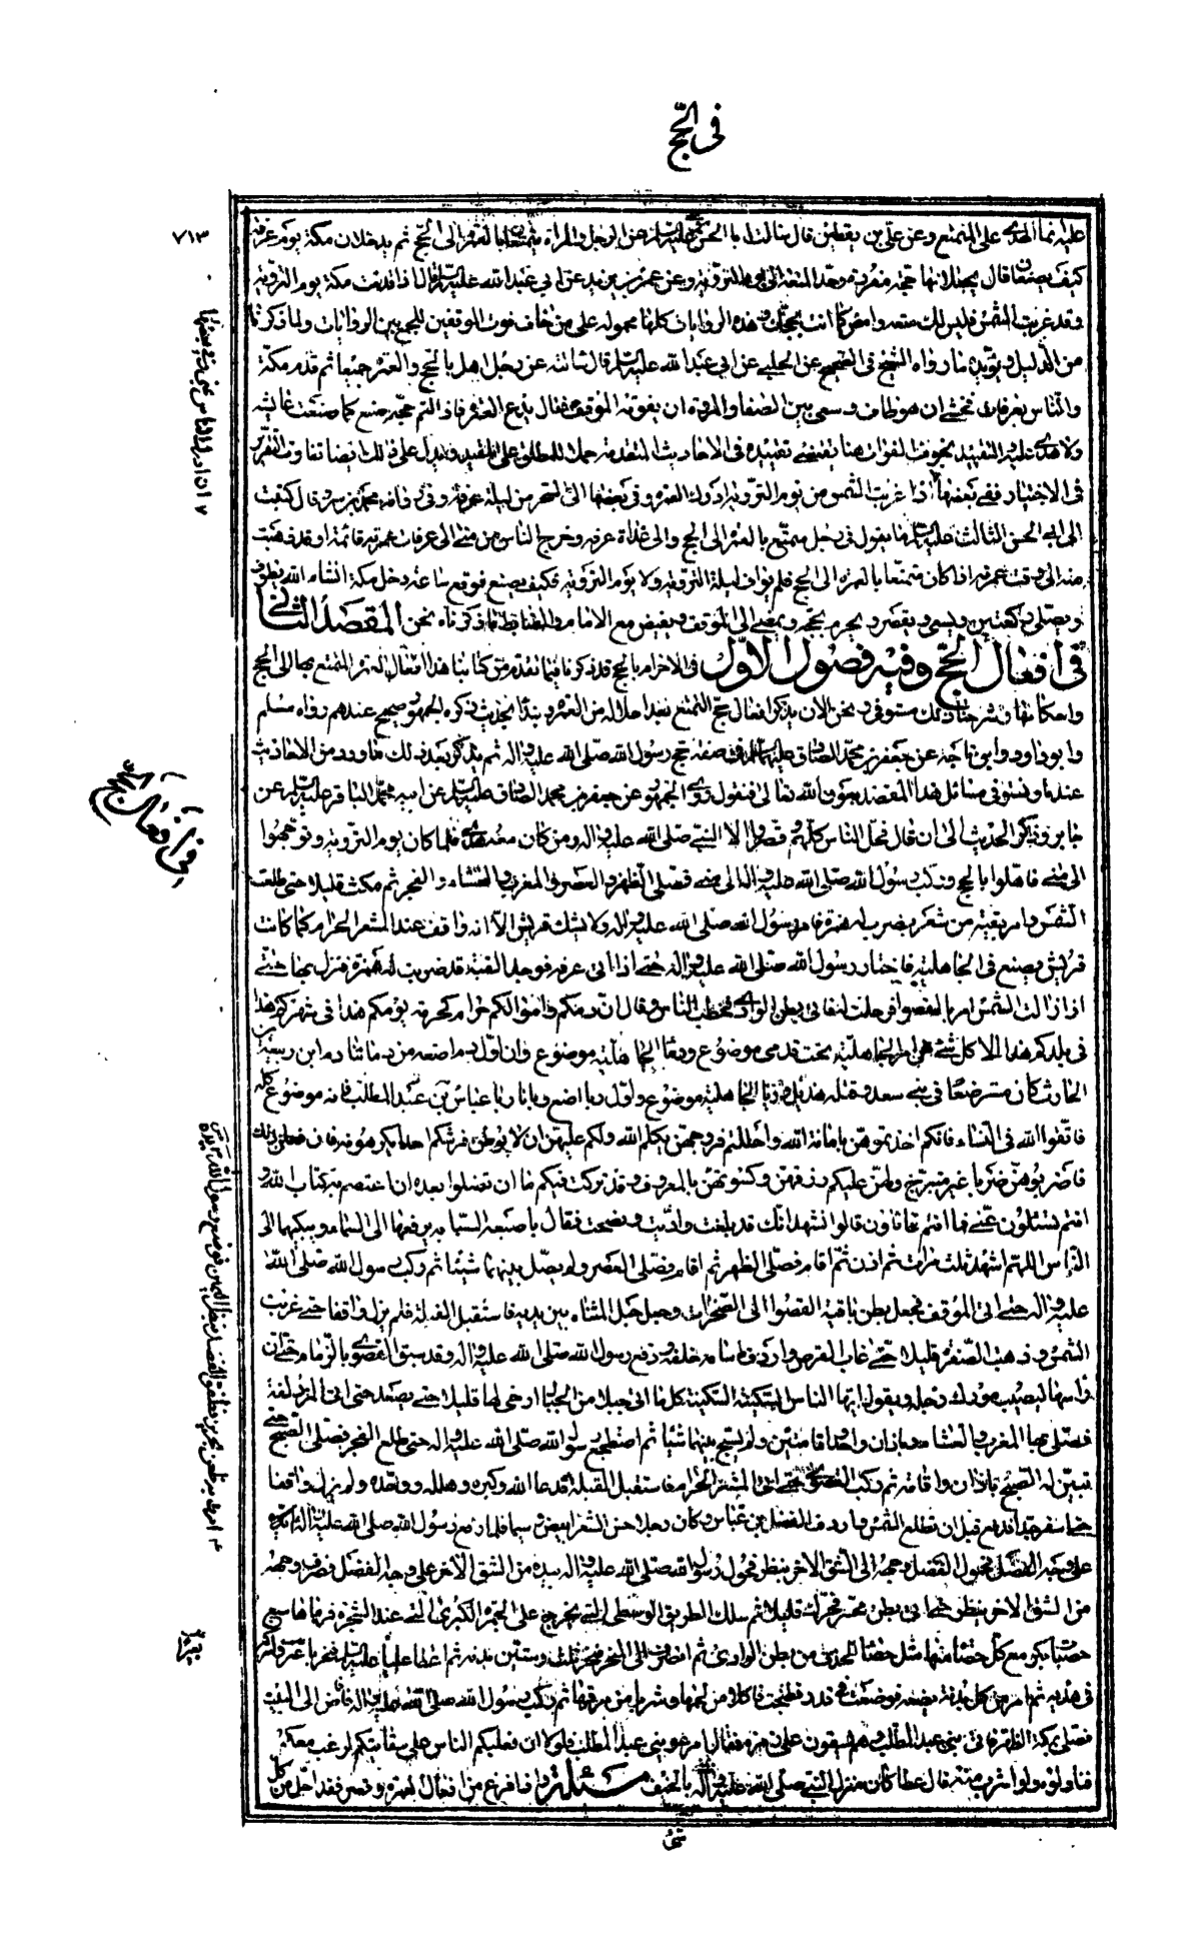 في الحج
٧١٣
عليه انما الهدى على المتمتع وعن علي بن يقطين قال سالت ابا الحسن موسى عليه السلام عن الرجل والمراة يتمتعان بالعمرة الى الحج ثم يدخلان مكة يوم عرفة
كيف يصنعان قال يجعلانها حجة مفردة وحد المتعة الى يوم التروية وعن عمر بن يزيد عن ابي عبد الله عليه السلام قال اذا قدمت مكة يوم التروية
وقد غربت الشمس فليس لك متعة وامض كما انت بحجك هذه الروايات كلها محمولة على من خاف فوت الموقفين للجمع بين الروايات ولما ذكرنا
من الدليل ويؤيده ما رواه الشيخ في الصحيح عن الحلبي عن ابي عبد الله عليه السلام قال سالته عن رجل اهل بالحج والعمرة جميعا ثم قدم مكة
والناس بعرفات فخشي ان هو طاف وسعى بين الصفا والمروة ان يفوته الموقف فقال يدع العمرة فاذا اتم حجه صنع كما صنعت عايشة
ولا هدى عليه التقييد بخوف الفوات هنا يقتضي تقييده في الاحاديث المتقدمة حملا للمطلق على المقيد ويدل على ذلك ايضا تفاوت التقدير
في الاخبار ففي بعضها اذا غربت الشمس من يوم التروية ادرك العمرة وفي بعضها الى السحر من ليلة عرفة وفي رواية محمد بن سرو قال كتبت
الى ابي الحسن الثالث عليه السلام ما يقول في رجل متمتع بالعمرة الى الحج وافى غداة عرفة وخرج الناس من منى الى عرفات عمرته قائمة او قد ذهبت
منه الى اى وقت عمرته اذا كان متمتعا بالعمرة الى الحج فلم يواف ليلة التروية ولا يوم التروية فكيف يصنع فوقع ساعة دخل مكة انشاء الله يطوف
ويصلي ركعتين ويسعى ويقصر ويحرم بحجه ويمضي الى الموقف ويفيض مع الامام والضابط ما ذكرناه نحن المقصد الثاني
في افعال الحج وفيه فصول الاول في الاحرام بالحج قد ذكرنا فيما تقدم من كتابنا هذا افعال العمرة المتمتع بها الى الحج
واحكامها وشرحنا ذلك مستوفى ونحن الان نذكر افعال حج التمتع بعد احلاله من العمرة ونبدا بحديث ذكره الجمهور صحيح عندهم رواه مسلم
وابو داود وابن ماجة عن جعفر بن محمد الصادق عليهما السلام في صفة حج رسول الله صلى الله عليه واله ثم نذكر بعد ذلك ما ورد من الاحاديث
عندنا ونستوفي مسائل هذا المقصد بعون الله تعالى فنقول روى الجمهور عن جعفر بن محمد الصادق عليه السلام عن ابيه محمد الباقر عليه السلام عن
جابر وذكر الحديث الى ان قال فحل الناس كلهم وقصروا الا النبي صلى الله عليه واله ومن كان معه هدى فلما كان يوم التروية وتوجهوا
الى منى فاهلوا بالحج وركب رسول الله صلى الله عليه واله الى منى فصلى الظهر والعصر والمغرب والعشاء والفجر ثم مكث قليلا حتى طلعت
الشمس وامر بقبة من شعر يضرب له بنمرة فسار رسول الله صلى الله عليه واله ولا يشك قريش الا انه واقف عند المشعر الحرام كما كانت
قريش يصنع في الجاهلية فاجتاز رسول الله صلى الله عليه واله حتى اذا اتى عرفه فوجد القبة قد ضربت له بنمرة فنزل بها حتى
اذا زالت الشمس امر بالقصواء فرحلت له فاتى بطن الوادي فخطب الناس وقال ان دمائكم واموالكم حرام كحرمة يومكم هذا في شهركم هذا
في بلدكم هذا الا كل شئ من امر الجاهلية تحت قدمي موضوع ودماء الجاهلية موضوع وان اول دم اضعه من دمائنا دم ابن ربيعة بن
الحارث كان مسترضعا في بني سعد وقتله هذيل وربا الجاهلية موضوع واول ربا اضع ربانا ربا عباس بن عبد المطلب فانه موضوع كله
فاتقوا الله في النساء فانكم اخذتموهن بامانة الله واحللتم فروجهن بكلمة الله ولكم عليهن ان لا يوطئن فرشكم احدا تكرهونه فان فعلن ذلك
فاضربوهن ضربا غير مبرح ولهن عليكم رزقهن وكسوتهن بالمعروف وقد تركت فيكم ما ان تضلوا بعده ان اعتصمتم به كتاب الله و
انتم تسئلون عني فما انتم قائلون قالوا نشهد انك قد بلغت واديت ونصحت فقال باصبعه السبابة يرفعها الى السماء وينكتها الى
الناس اللهم اشهد ثلث مرات ثم اذن ثم اقام فصلى الظهر ثم اقام فصلى العصر ولم يصل بينهما شيئا ثم ركب رسول الله صلى الله
عليه واله حتى اتى الموقف فجعل بطن ناقته القصواء الى الصخرات وجعل حبل المشاة بين يديه فاستقبل القبلة فلم يزل واقفا حتى غربت
الشمس وذهبت الصفرة قليلا حتى غاب القرص واردف اسامة خلفه ودفع رسول الله صلى الله عليه واله وقد سبق القصوى بالزمام حتى ان
راسها ليصيب مورك رحله ويقول ايها الناس السكينة السكينة كلما اتى جبلا من الجبال ارخى لها قليلا حتى يصعد حتى اتى المزدلفة
فصلى بها المغرب والعشاء باذان واحد واقامتين ولم يسبح بينهما شيئا ثم اضطجع رسول الله صلى الله عليه واله حتى طلع الفجر فصلى الصبح حتى
تبين له الصبح باذان واقامة ثم ركب القصوى حتى اتى المشعر الحرام فاستقبل القبلة فدعا الله وكبره وهلله ووحده ولم يزل واقفا
حتى اسفر جدا فدفع قبل ان تطلع الشمس واردف الفضل بن عباس وكان رجلا حسن الشعر ابيض وسيما فلما دفع رسول الله صلى الله عليه واله
على وجه الفضل فحول الفضل وجهه الى الشق الاخر ينظر فحول رسول الله صلى الله عليه واله يده من الشق الاخر على وجه الفضل فصرف وجهه
من الشق الاخر ينظر حتى اتى بطن محسر فحرك قليلا ثم سلك الطريق الوسطى التي يخرج على الجمرة الكبرى التي عند الشجرة فرماها بسبع
حصيات يكبر مع كل حصاة منها مثل حصا الخذف من بطن الوادي ثم انصرف الى المنحر فنحر ثلث وستين بدنة ثم اعطا عليا عليه السلام فنحر ما غبر واشركه
في هديه ثم امر من كل بدنة ببضعه فوضعت في قدر وطبخت فاكلا من لحمها وشربا من مرقها ثم ركب رسول الله صلى الله عليه واله فافاض الى البيت
فصلى بمكة الظهر فاتى بني عبد المطلب وهم يسقون على زمزم فقال انزعوا بني عبد المطلب فلولا ان يغلبكم الناس على سقايتكم لنزعت معكم
فناولوه دلوا فشرب منه قال عطا كان منزل النبي صلى الله عليه واله بالخيف مسئلة اذا فرغ من افعال العمرة وقصر فقد احل من كل
شئ
في افعال الحج